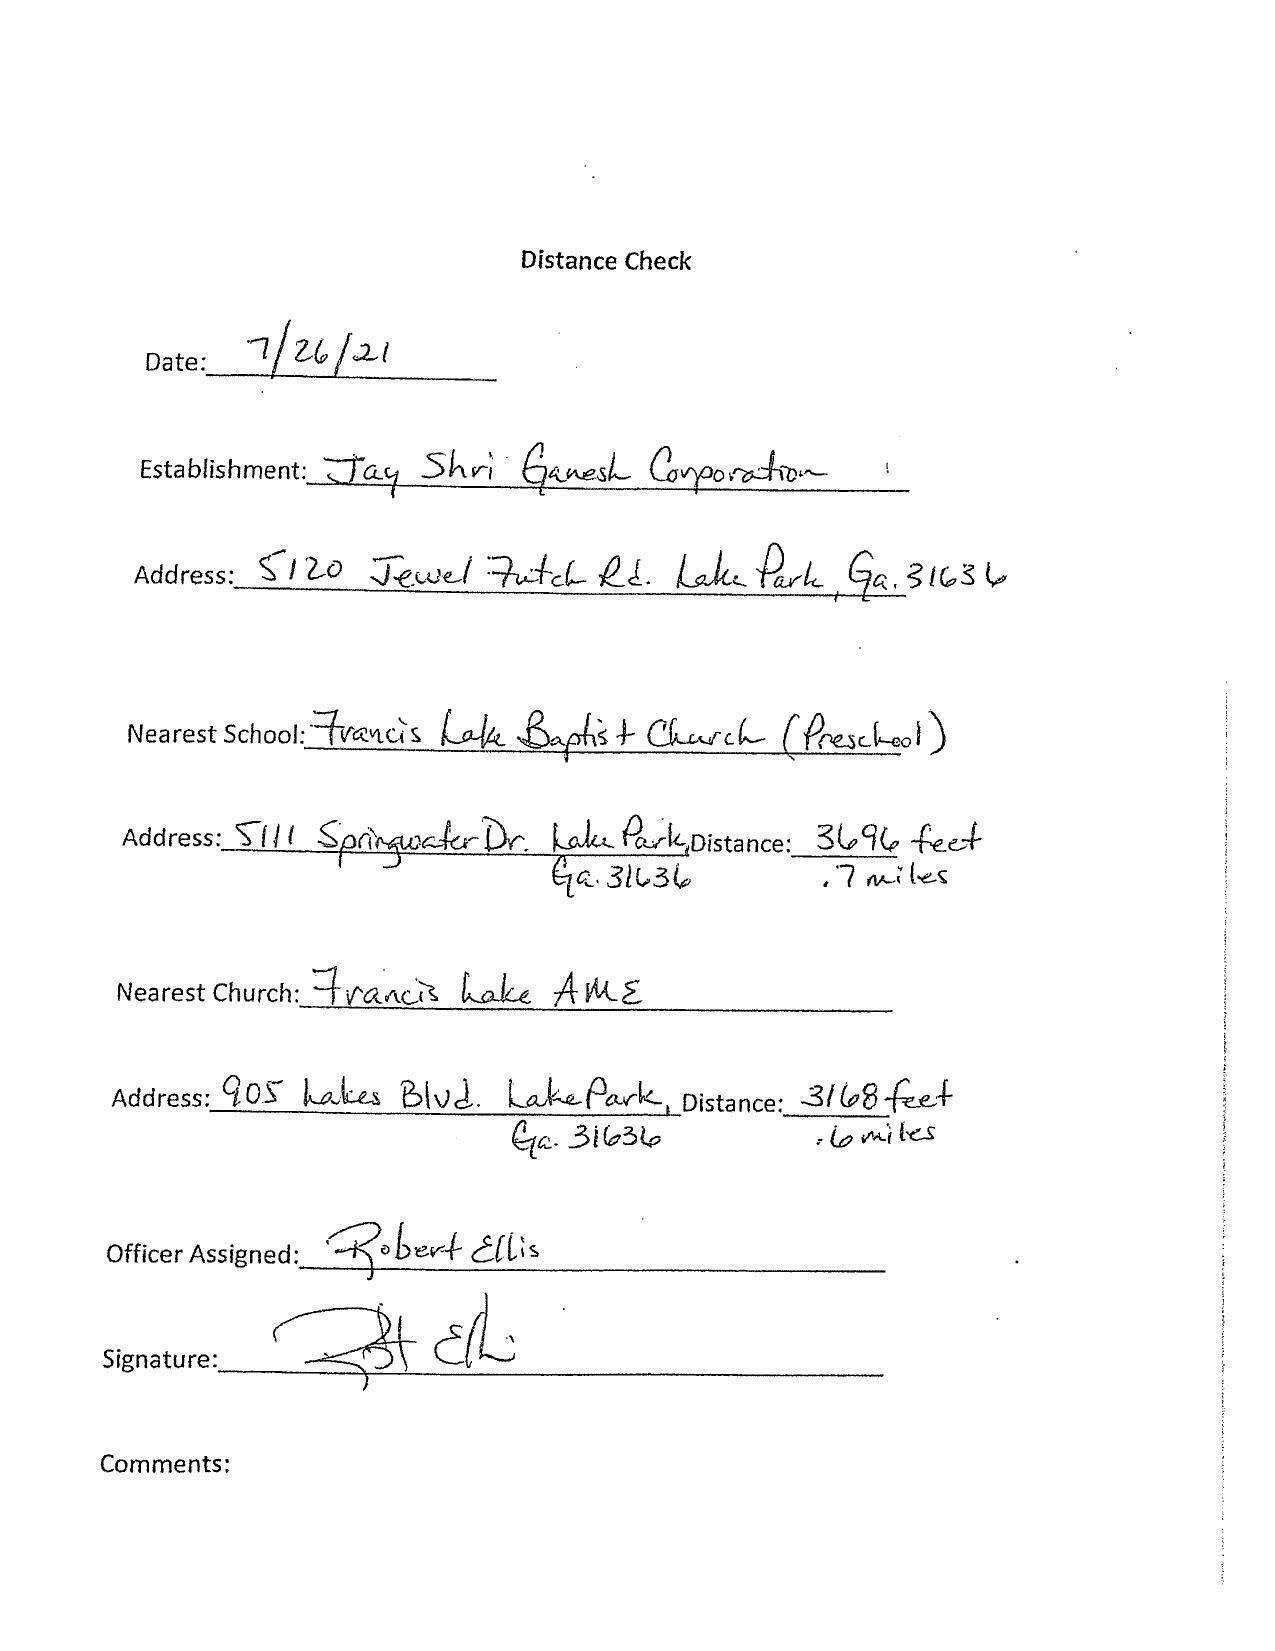 Distance Check
Date: 7/26/21
Establishment: Jay Shri Ganesh Corporation
Address: 5120 Jewel Futch Rd. Lake Park, Ga. 31636
Nearest School: Francis Lake Baptist Church (Preschool)
Address: 5111 Springwater Dr. Lake Park, Distance: 3696 feet
Ga. 31636 .7 miles
Nearest Church: Francis Lake AME
Address: 905 Lakes Blvd. Lake Park, Distance: 3168 feet
Ga. 31636 .6 miles
Officer Assigned: Robert Ellis
Signature:
Comments: